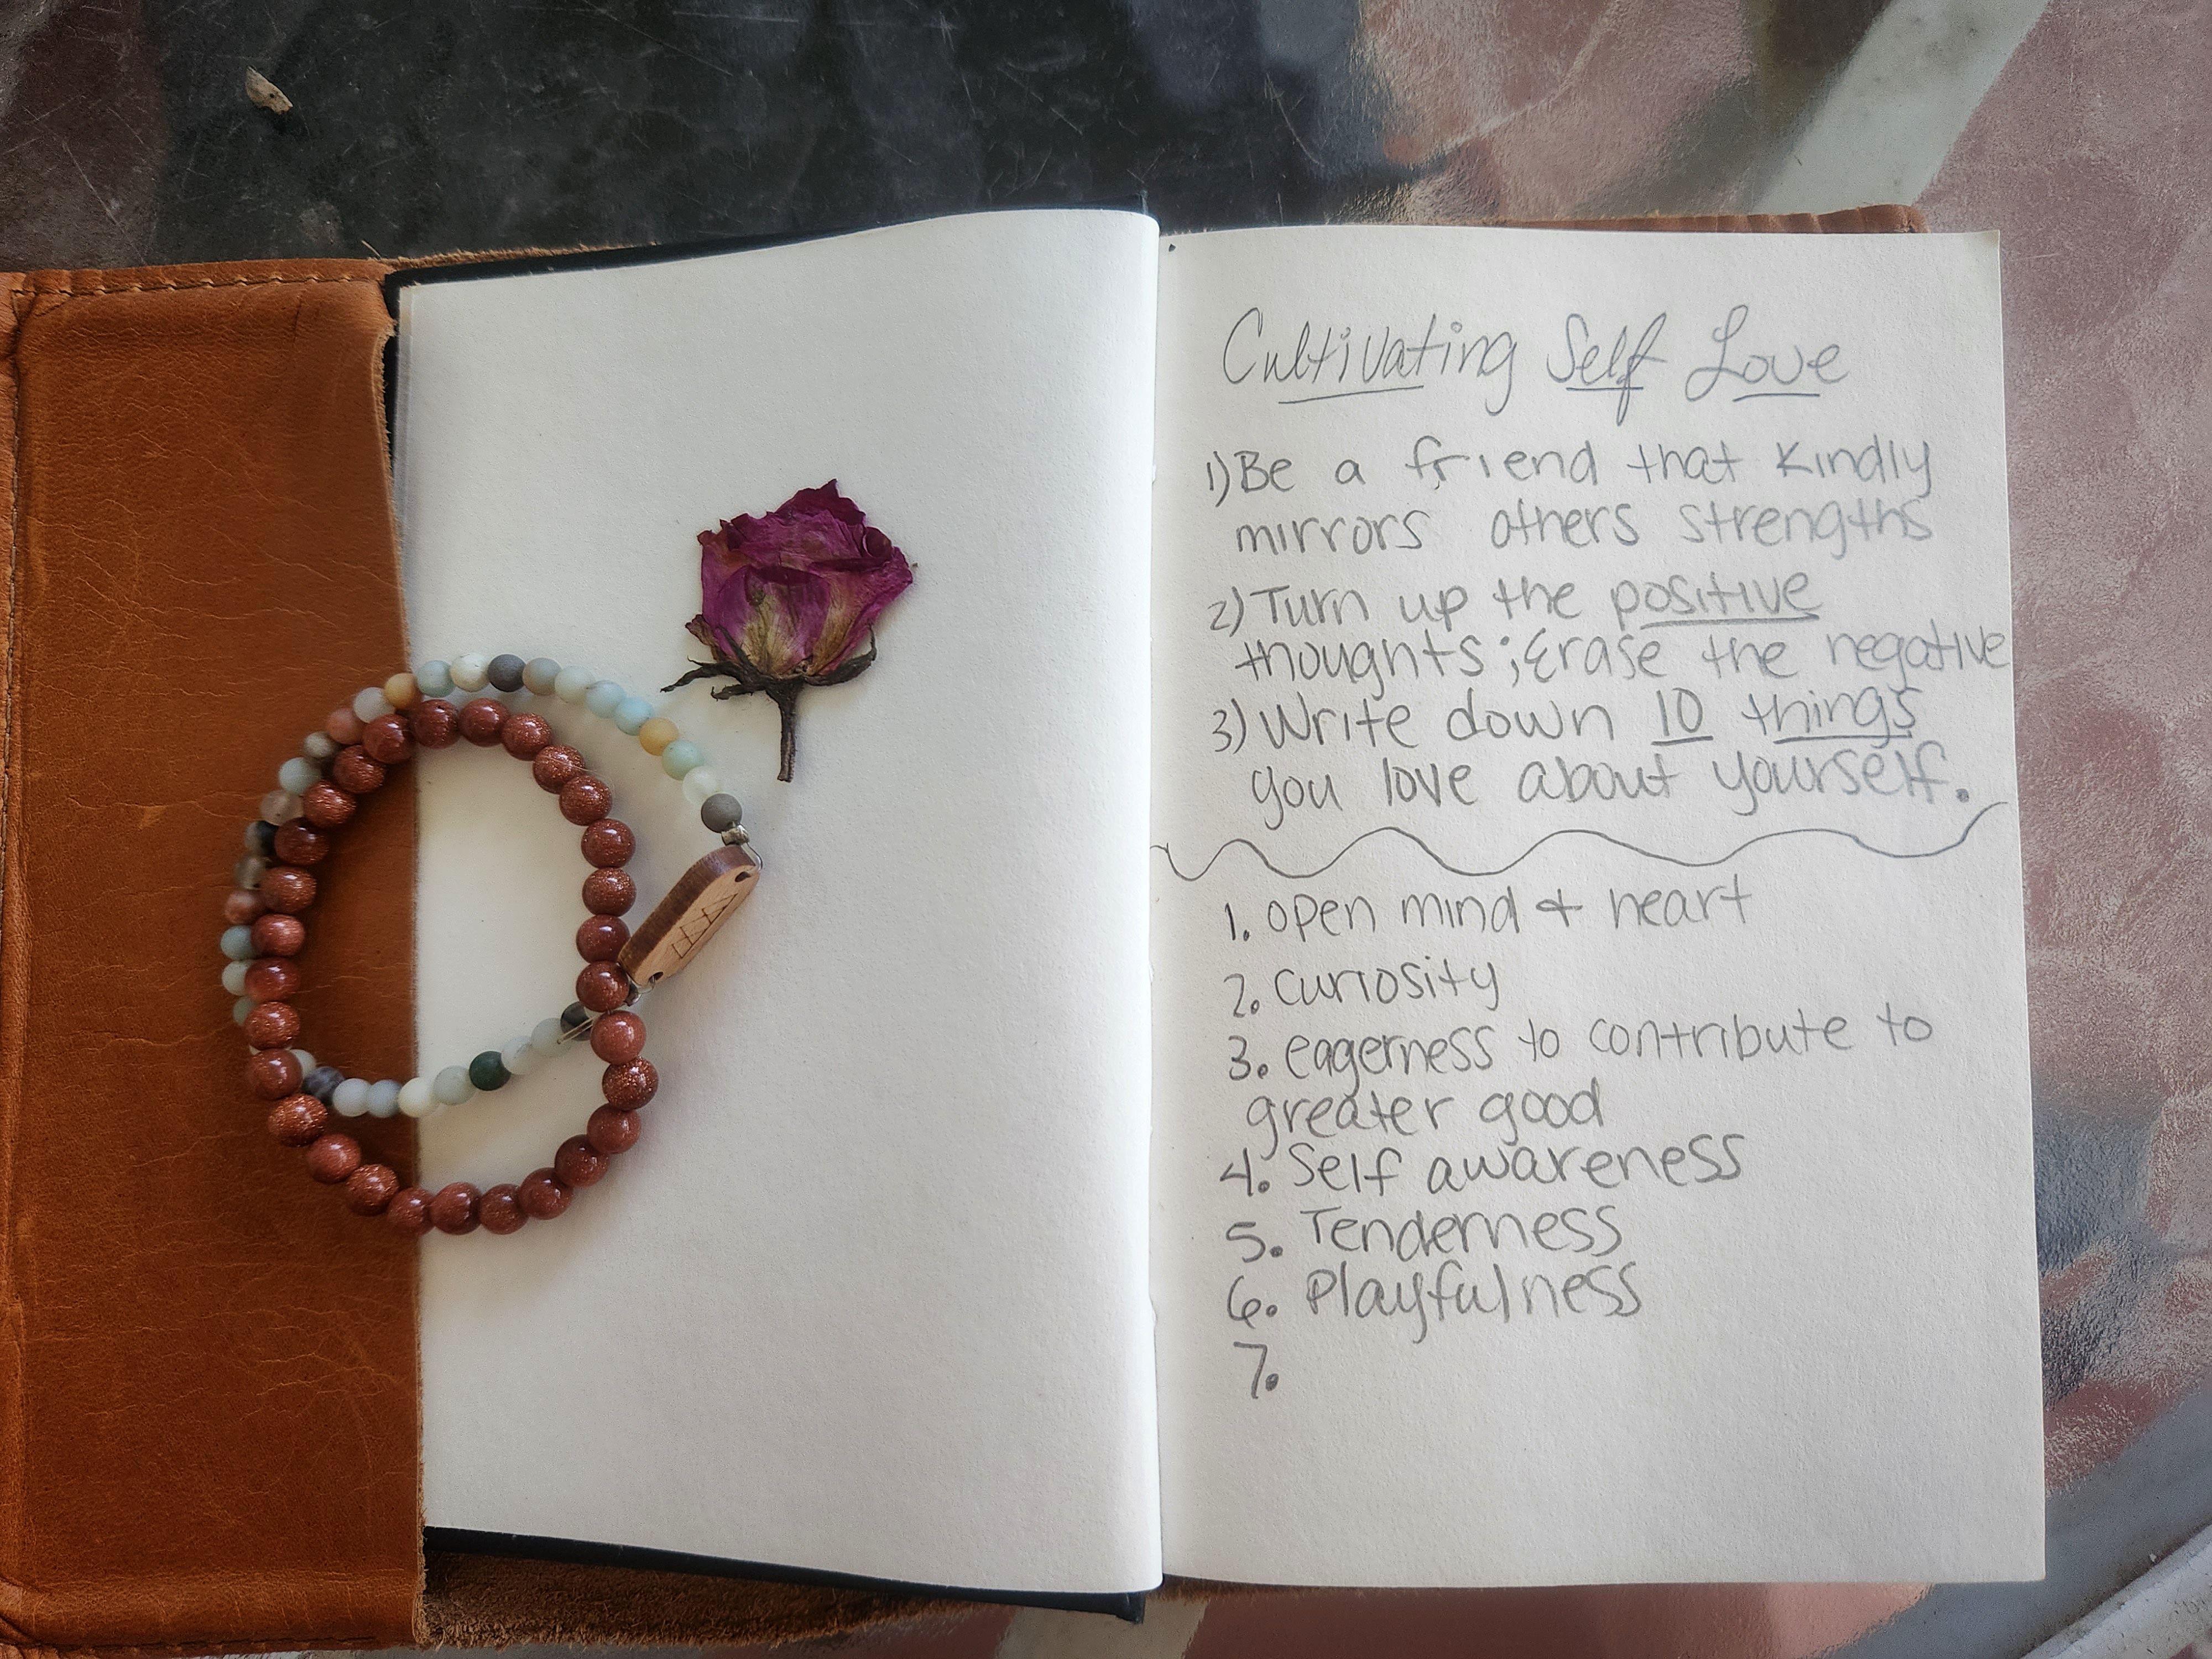 Cultivating Self Love
1) Be a friend that kindly
mirrors others strengths
2) Turn up the positive
thoughts; Erase the negative
3) Write down 10 things
you love about yourself.
1. open mind & heart
2. curiosity
3. eagerness to contribute to
greater good
4. Self awareness
5. Tenderness
6. Playfulness
7.